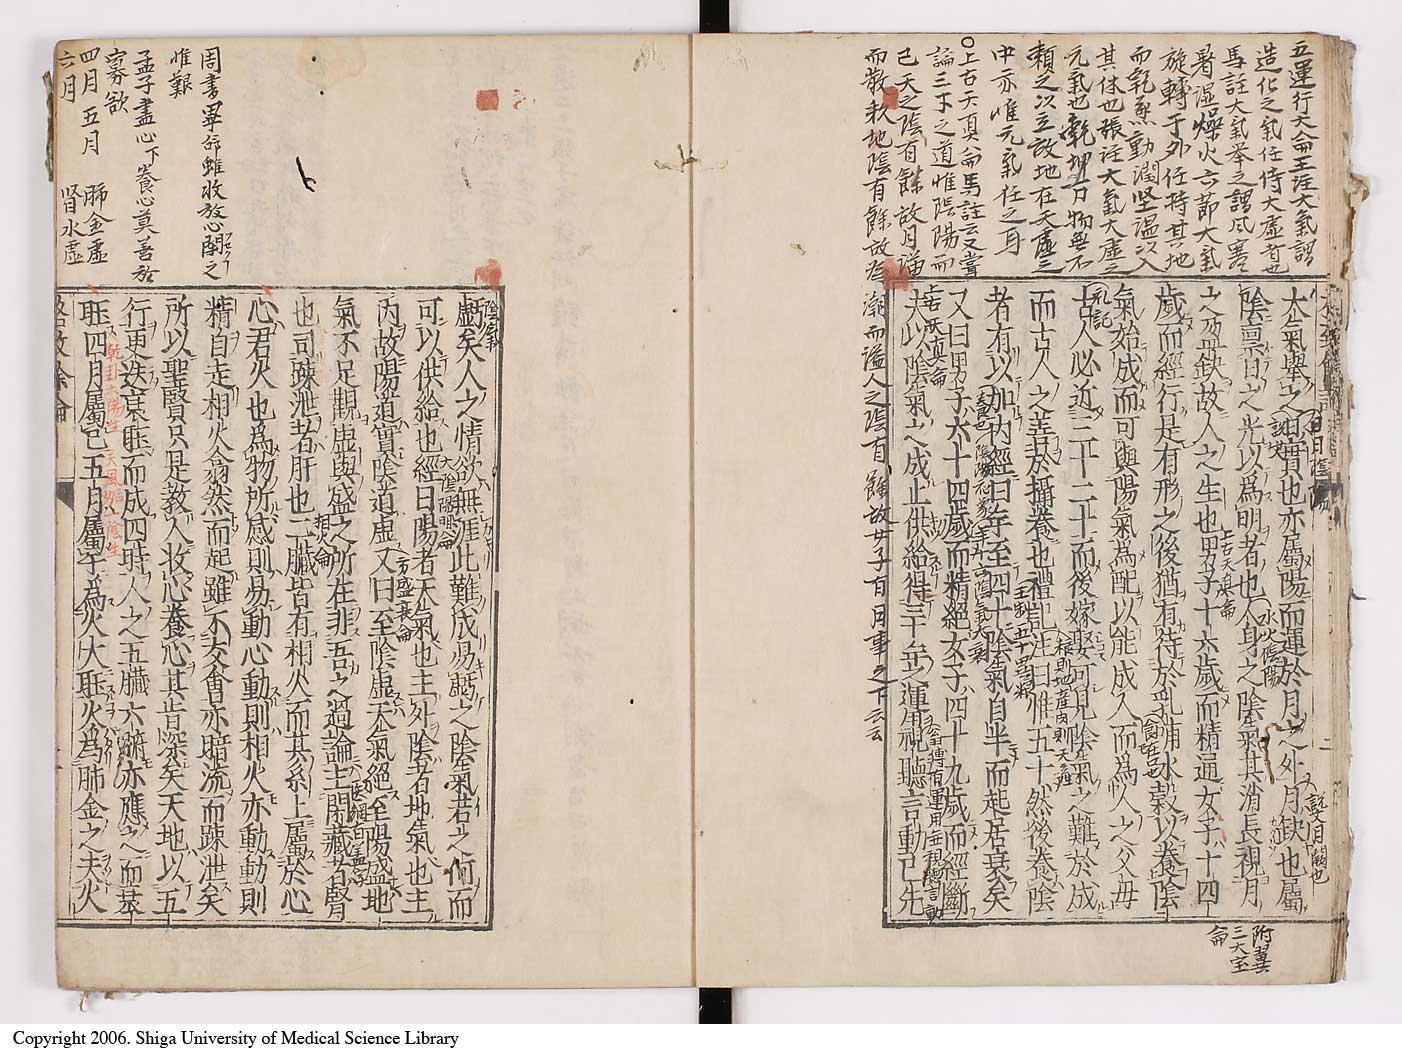 五運行大侖王注大氣謂
造化之氣任侍大虛者也
馬註大氣举之謂風寒
暑湿燥火六節大氣
旋轉于外任持其地
而乾烝動潤坚温以入
其体也張注大氣大虛之
元氣也乾坤万物無不
頼之以立故地在天虛之
中亦惟元氣任之耳
〇上古天真侖馬註云又嘗
論三才之道惟陰陽而
已天之陰有餘故月滿
而散耗地陰有餘故為
潮而溢人之陰有餘故女子有月事之下云云
大氣舉之日實也亦屬陽而運於月之外月缺也屬
陰稟日之光以為明者也人身之陰氣其消長視月
之盈缺故人之生也男子十六歲而精通女子十四
歲而經行是有形之後猶有待於乳哺水穀以養陰
氣始成而可與陽氣為配以能成人而為人之父母
古人必近三十二十而後嫁娶可見陰氣之難於成
而古人之善於攝養也禮記注曰惟五十然後養陰
者有以加內經曰年至四十陰氣自半而起居衰矣
又曰男子六十四歲而精絕女子四十九歲而經斷
夫以陰氣之成止供給得三十年之運用視聽言動已先
上古天真侖
水火陰陽
附翼
三大宝
侖
周書畢命雖收放心閑之
惟艱
孟子盡心下養心莫善於
寡欲
四月 五月 肺金虛
六月 腎水虛
虧矣人之情欲無涯此難成易虧之陰氣若之何而
可以供給也經曰陽者天氣也主外陰者地氣也主
內故陽道實陰道虛又曰至陰虛天氣絕至陽盛地
氣不足觀虛與盛之所在非吾之過論主閉藏者腎
也司疎泄者肝也二臟皆有相火而其系上屬於心
心君火也為物所感則易動心動則相火亦動動則
精自走相火翕然而起雖不交會亦暗流而疎泄矣
所以聖賢只是教人收心養心其旨深矣天地以五
行更迭衰旺而成四時人之五臟六腑亦應之而衰
旺四月屬巳五月屬午為火大旺火為肺金之夫火
太陰陽明侖
方盛衰侖
相火侖
乾卦六陽生 天風姤一陰生
格致餘侖
Copyright 2006. Shiga University of Medical Science Library